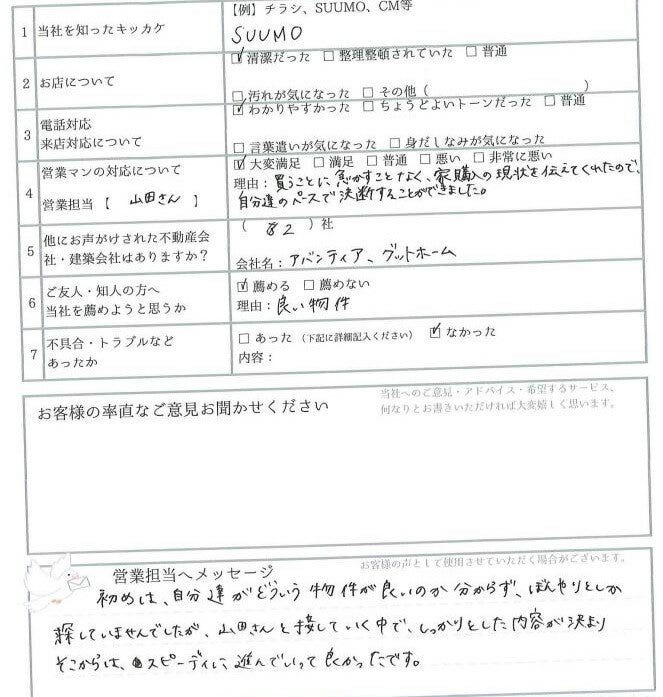 1 当社を知ったキッカケ
【例】チラシ、SUUMO、CM等
SUUMO
2 お店について
☑ 清潔だった □ 整理整頓されていた □ 普通
□ 汚れが気になった □ その他 ( )
3 電話対応
来店対応について
☑ わかりやすかった □ ちょうどよいトーンだった □ 普通
□ 言葉遣いが気になった □ 身だしなみが気になった
4 営業マンの対応について
営業担当【 山田さん 】
☑ 大変満足 □ 満足 □ 普通 □ 悪い □ 非常に悪い
理由：買うことに急かすことなく、家購入の現状を伝えてくれたので、
自分達のペースで決断することができました。
5 他にお声がけされた不動産会
社・建築会社はありますか？
( 82 ) 社
会社名：アバンティア、グットホーム
6 ご友人・知人の方へ
当社を薦めようと思うか
☑ 薦める □ 薦めない
理由：良い物件
7 不具合・トラブルなど
あったか
□ あった （下記に詳細記入ください） ☑ なかった
内容：
お客様の率直なご意見お聞かせください
当社へのご意見・アドバイス・希望するサービス、
何なりとお書きいただければ大変嬉しく思います。
営業担当へメッセージ
お客様の声として使用させていただく場合がございます。
初めは、自分達がどういう物件が良いのか分からず、ぼんやりとしか
探していませんでしたが、山田さんと接していく中で、しっかりとした内容が決まり
そこからは、スピーディに進んでいって良かったです。